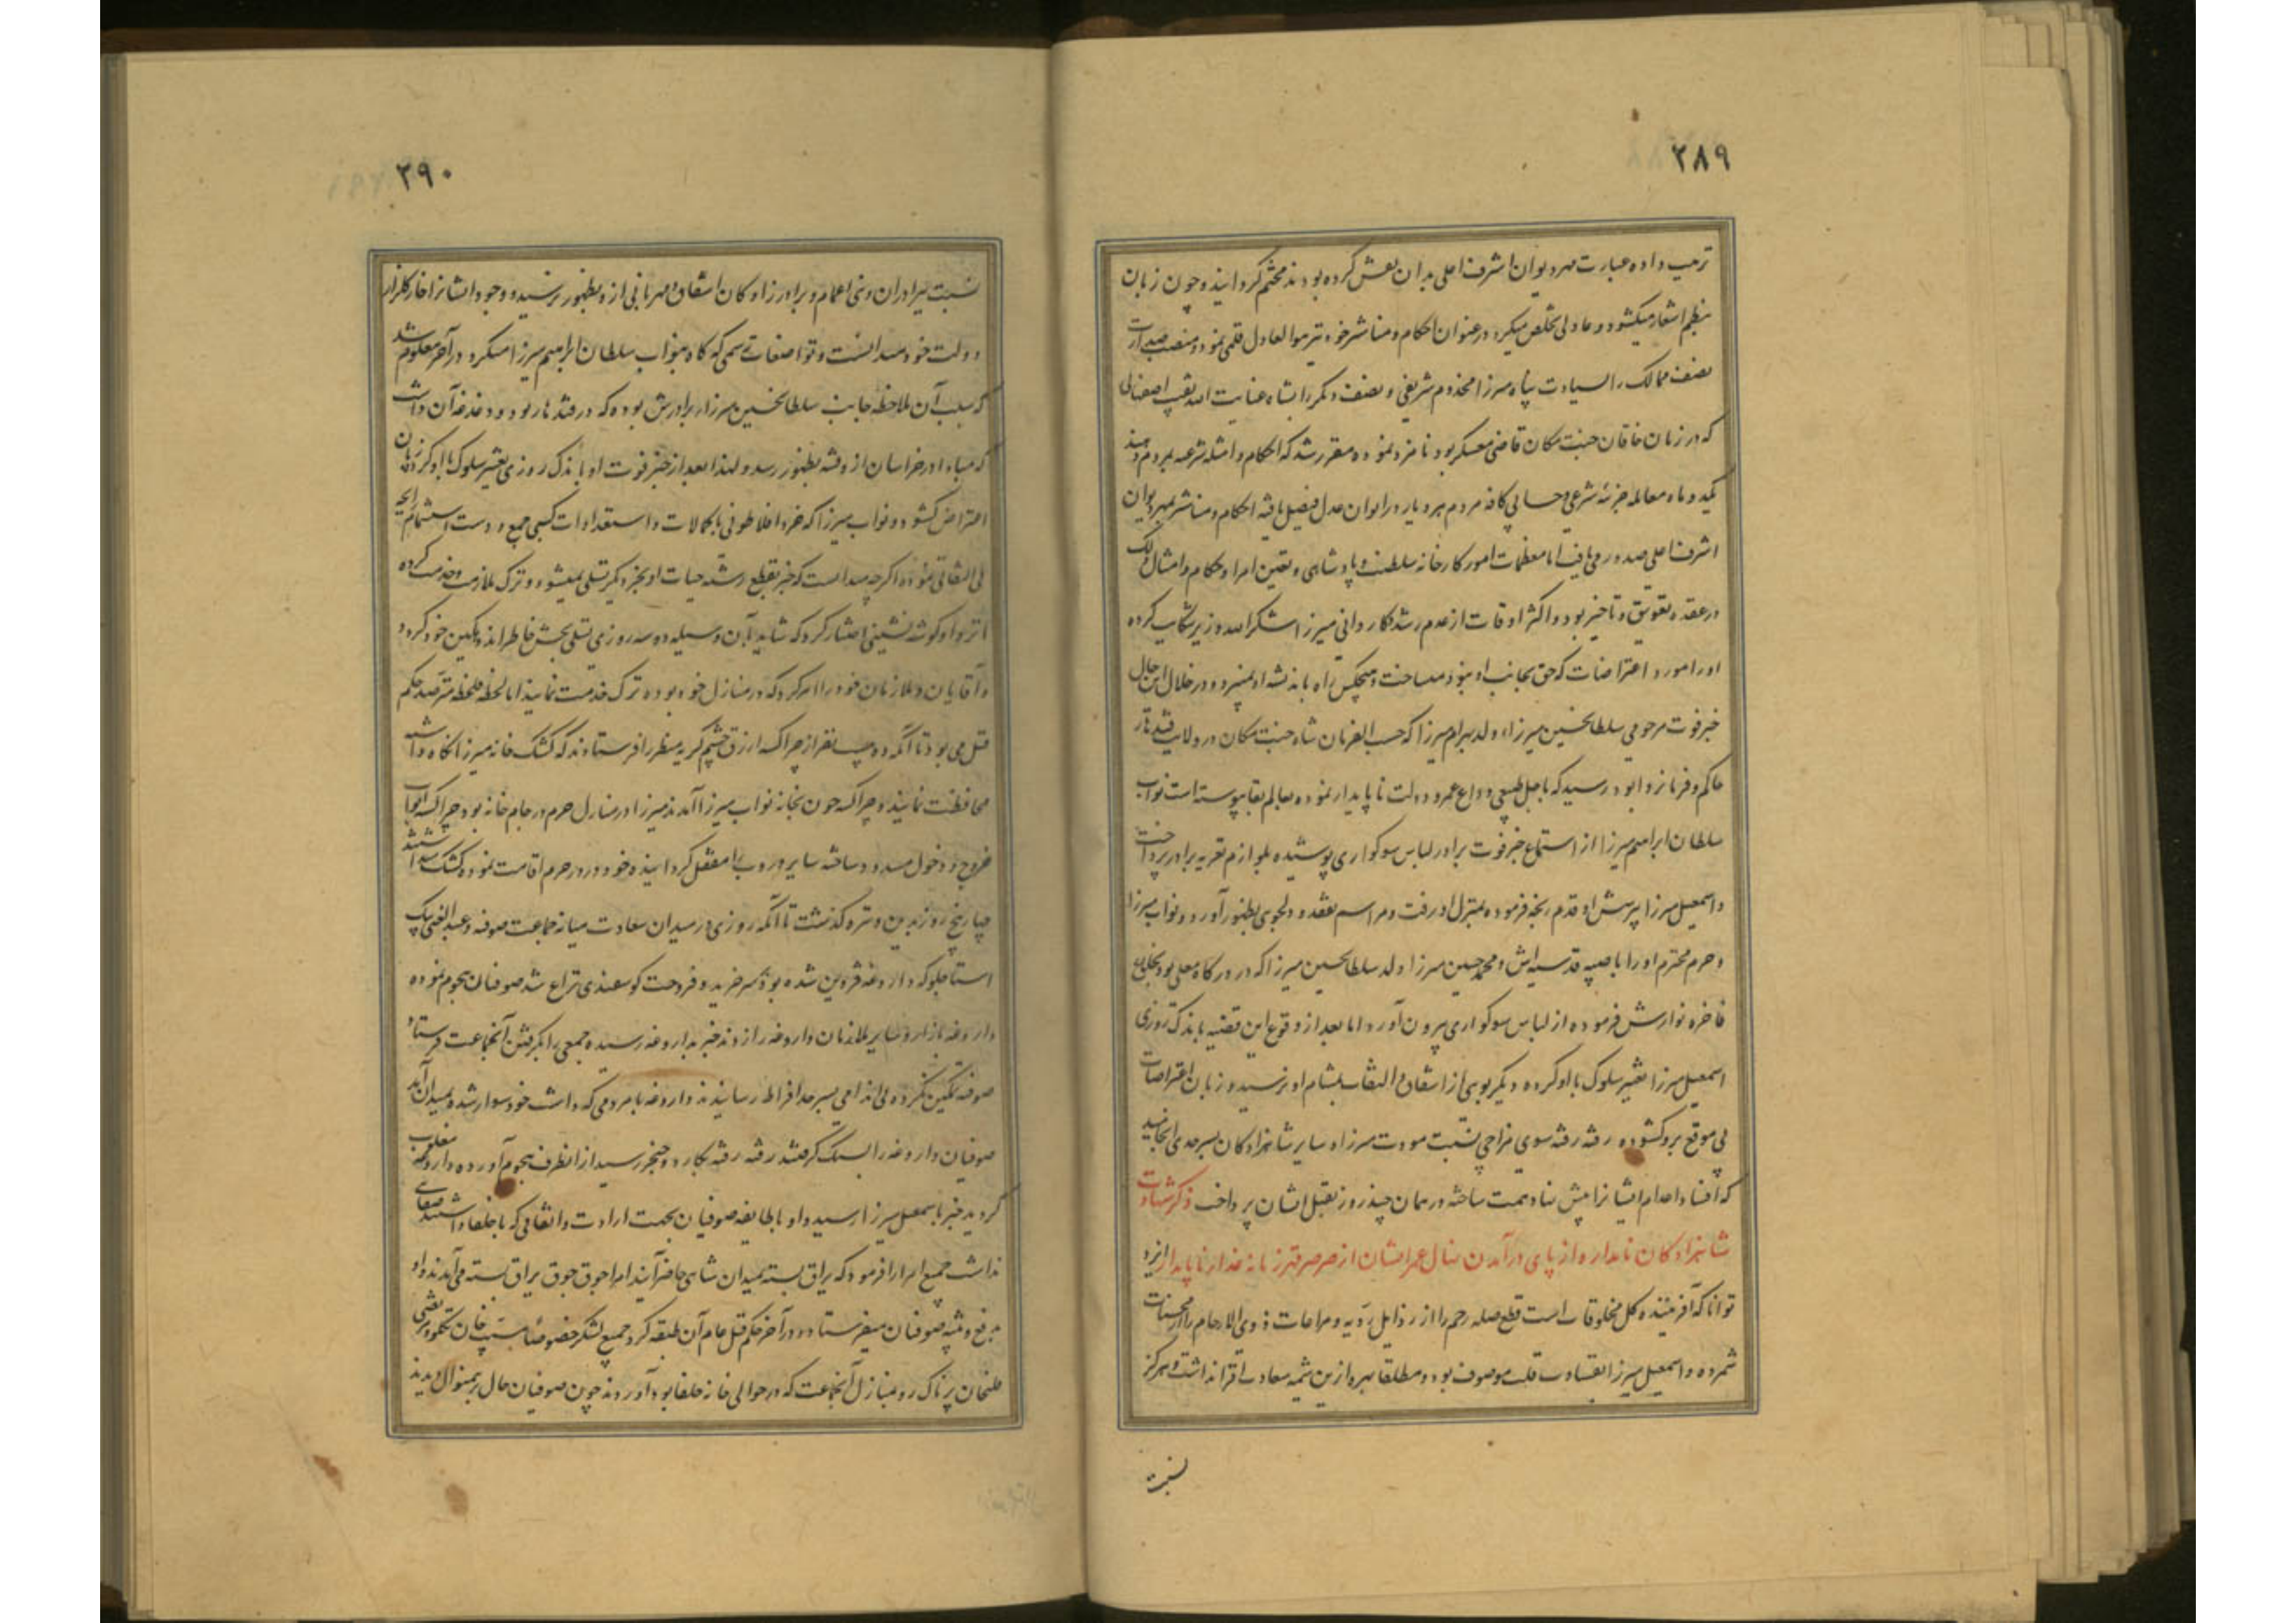 ۲۸۹
ترتیب داده عبارت مهر دیوان اشرف اعلی بدان نقش کرده بودند مختم گردانید و چون زبان
بنظم اشعار میگشود و عادلی تخلص میکرد در عنوان احکام و مناشیر خود نیز هوالعادل قلمی نمود و منصب صدارت
نصف ممالک را بسیادت پناه میرزا مخدوم شریفی و نصف دیگر را بشاه عنایت الله نقیب اصفهانی
که در زمان خاقان جنت مکان قاضی معسکر بود نامزد نموده مقرر شد که احکام و امثله شرعیه بمردم دهند
یکدو ماه معامله جزئه شرعی و حسابی کافه مردم هر دیار در ایوان عدل فیصل یافته احکام و مناشیر بمهر دیوان
اشرف اعلی صدور می یافت اما معظمات امور کارخانه سلطنت و پادشاهی و تعیین امرا و حکام و امثال ذلک
در عقده تعویق و تاخیر بود و اکثر اوقات از عدم رشد و کاردانی میرزا شکرالله وزیر شکایت کرده
او را مورد اعتراضات که حق بجانب او نبود میساخت و هیچکس راه باندیشه او نمیبرد و در خلال این حال
خبر فوت مرحومی سلطانحسین میرزا ولد بهرام میرزا که حسب الفرمان شاه جنت مکان در ولایت قندهار
حاکم و فرمانروا بود رسید که باجل طبیعی وداع عمر و دولت ناپایدار نموده بعالم بقا پیوسته است نواب
سلطان ابراهیم میرزا از استماع خبر فوت برادر لباس سوکواری پوشیده بلوازم تعزیه برادر پرداخت
و اسمعیل میرزا بپرسش او قدم رنجه فرموده بمنزل او رفت و مراسم تفقد و دلجوی بظهور آورد و نواب میرزا
و حرم محترم او را با صبیه قدسیه اش و محمدحسین میرزا ولد سلطانحسین میرزا که در درگاه معلی بود بخلاع
فاخره نوازش فرموده از لباس سوکواری بیرون آورد اما بعد از وقوع این قضیه باندک روزی
اسمعیل میرزا تغییر سلوک با او کرده دیگر بوی از اشفاق و التفات بمشام او نرسید و زبان اعتراضات
بی موقع برو گشوده رفته رفته سوی مزاجی نسبت بحضرت میرزا و سایر شاهزادگان بسرحدی انجامید
که افنا و اعدام ایشانرا پیش نهاد همت ساخته در همان چند روز بقتل ایشان پرداخت ذکر شهادت
شاهزادگان نامدار و از پای درآمدن نهال عمر ایشان از صرصر قهر زمانه غدار ناپایدار ایزد
توانا که آفریننده کل مخلوقات است قطع صله رحم را از رذایل ردیه و مراعات ذوی الارحام را از محسنات
شمرده و اسمعیل میرزا بقساوت قلب موصوف بود و مطلقا بهره ازین شیمه سعادت اقران نداشت و هرگز
نسبت
۲۹۰
نسبت ببرادران و بنی اعمام و برادرزادگان اشفاق و مهربانی ازو بظهور نرسید و وجود ایشانرا خار گلزار
دولت خود میدانست و تواضعات رسمی که گاه بنواب سلطان ابراهیم میرزا میکرد در آخر معلوم شد
که سبب آن ملاحظه جانب سلطانحسین میرزا برادرش بوده که در قندهار بود و دغدغه آن داشت
که مبادا در خراسان ازو فتنه بظهور رسد و لهذا بعد از خبر فوت او باندک روزی تغییر سلوک با او کرد زبان
اعتراض گشود و نواب میرزا که خرد افلاطونی با کمالات و استعدادات کسبی جمع داشت استشمام رایحه
بی التفاتی نموده اگرچه میدانست که خبر بقطع رشته حیات او بچیز دیگر تسلی نمیشود و ترک ملازمت و خدمت کرده
انزوا و گوشه نشینی اختیار کرد که شاید بآن وسیله دو سه روزی تسلی بخش خاطر اندوهگین خود گردد
و آقایان و ملازمان خود را امر کرد که در منازل خود بوده ترک خدمت نمایند اما لحظه بلحظه مترصد حکم
قتل می بود تا آنکه دویست نفر از چراکسه ازرق چشم کریه منظر را فرستادند که کشک خانه میرزا نگاه داشته
محافظت نمایند و چراکسه چون بخانه نواب میرزا آمدند میرزا در منازل حرم در جام خانه بود چراکسه ابواب
خروج و دخول مسدود ساخته سایر دروب را مقفل گردانیده خود در در حرم اقامت نمود و کشک میداشتند
چهار پنج روز بدین وتیره گذشت تا آنکه روزی در میدان سعادت میانه جماعت صوفیه و عبدالغنی بیک
استاجلو که داروغه قزوین شده بود بر سر خرید و فروخت گوسفندی نزاع شد صوفیان هجوم نموده
داروغه بازار و سایر ملازمان داروغه را زدند خبر بداروغه رسیده جمعی را بگرفتن آنجماعت فرستاد
صوفیه تمکین نکرده بی اندامی بسرحد افراط رسانیدند داروغه با مردمی که داشت خود سوار شده بمیدان آمد
صوفیان داروغه را بسنگ گرفتند رفته رفته بکارد و خنجر رسید از اطراف هجوم آورده داروغه مغلوب
گردید خبر باسمعیل میرزا رسید و او با طایفه صوفیان بجهت ارادت و اتفاقی که با خلفا داشتند صفای
نداشت جمیع امرا را فرمود که یراق بسته بمیدان شاهی حاضر آیند امرا جوق جوق یراق بسته می آمدند و او
بدفع و تنبه صوفیان میفرستاد و در آخر حکم قتل عام آن طبقه کرد جمیع لشکر خصوصا مسیب خان تکلو و مرتضی
قلیخان پرناک رو بمنازل آنجماعت که در حوالی خانه خلفا بود آوردند چون صوفیان حال بدینمنوال دیدند